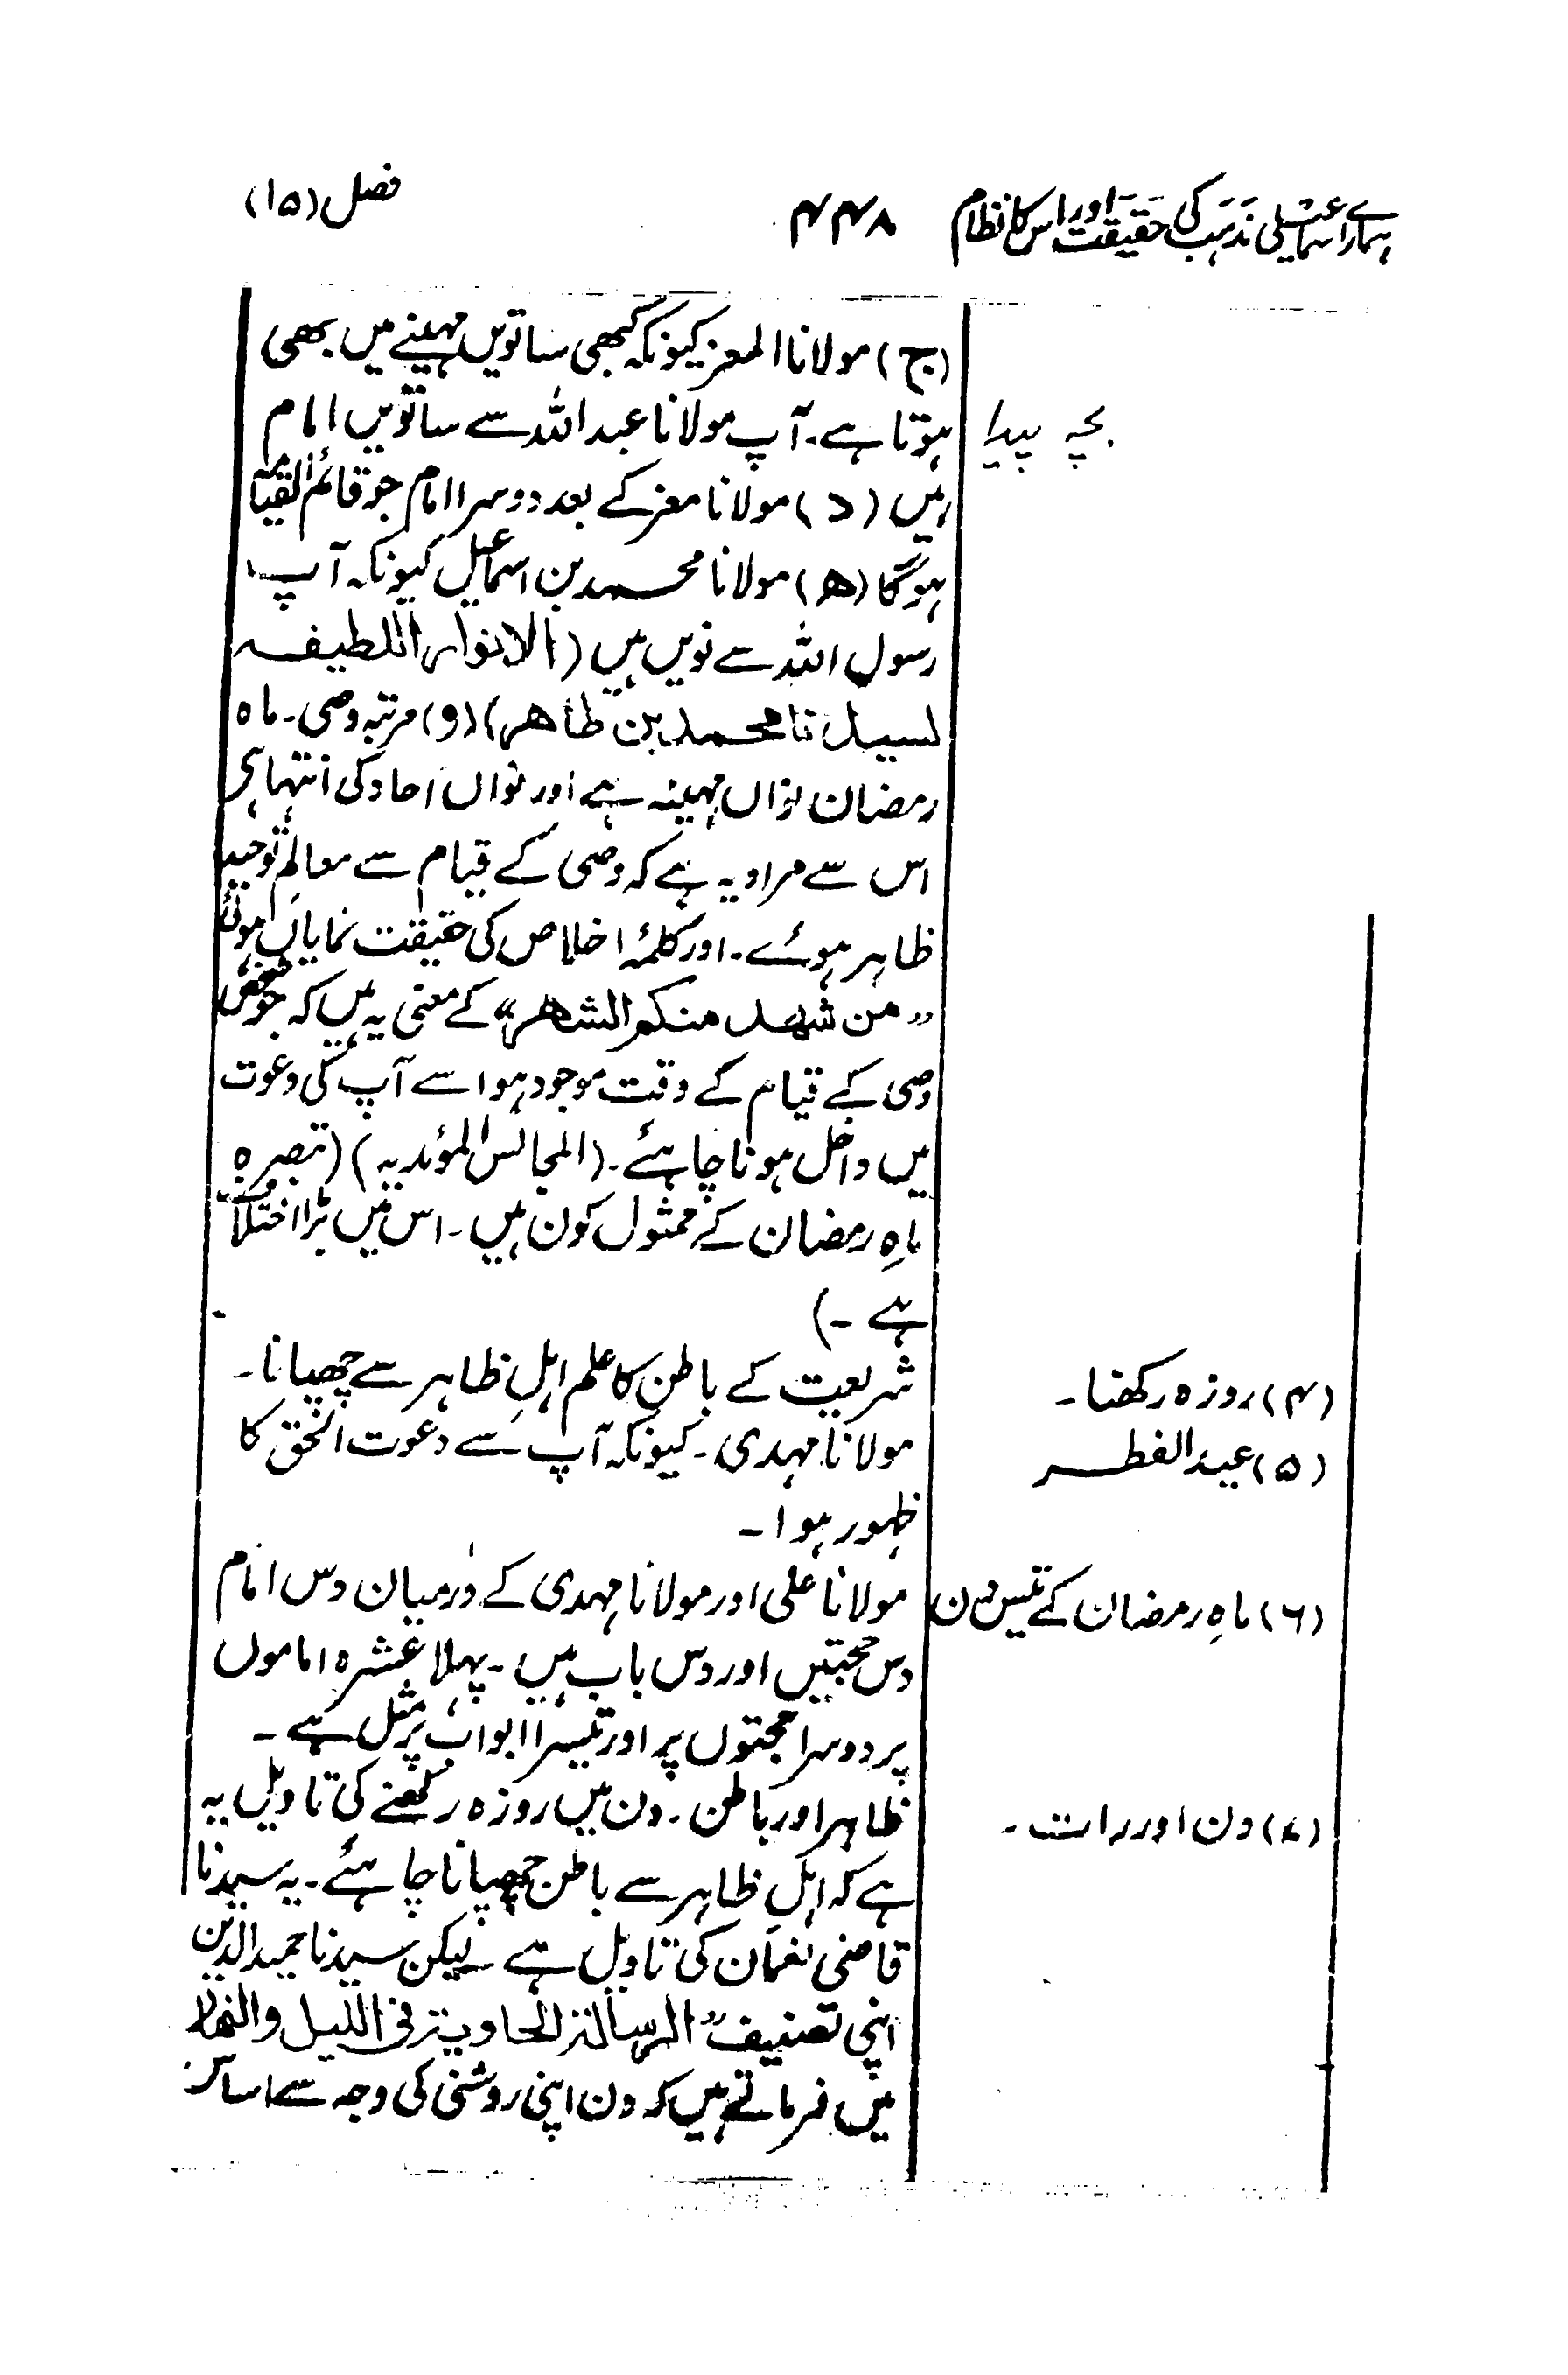 ہمارے اسماعیلی مذہب کی حقیقت اور اس کا نظام ۴۴۸ فصل (۱۵)
(ج) مولانا المعز کیونکہ کبھی ساتویں مہینے میں بھی
بچہ پیدا ہوتا ہے۔ آپ مولانا عبد اللہ سے ساتویں امام
ہیں (د) مولانا معز کے بعد دوسرا امام جو قائم القیامۃ
ہوگا (ھ) مولانا محمد بن اسماعیل کیونکہ آپ
رسول اللہ سے نویں ہیں (الانوار اللطیفہ
لسیدنا محمد بن طاھر) (و) مرتبہ وصی۔ ماہ
رمضان نواں مہینہ ہے اور نواں احاد کی انتہا ہے
اس سے مراد یہ ہے کہ وصی کے قیام سے معالمِ توحید
ظاہر ہوئے۔ اور کلمۂ اخلاص کی حقیقت نمایاں ہوئی
"من شھد منکم الشھر" کے معنی یہ ہیں کہ جو شخص
وصی کے قیام کے وقت موجود ہو اسے آپ کی دعوت
میں داخل ہونا چاہئے۔ (المجالس المؤیدیہ) (تبصرہ
ماہِ رمضان کے ممثول کون ہیں۔ اس میں بڑا اختلاف
ہے۔)
(۴) روزہ رکھنا۔ شریعت کے باطن کا علم اہلِ ظاہر سے چھپانا۔
(۵) عید الفطر مولانا مہدی۔ کیونکہ آپ سے دعوت الحق کا
ظہور ہوا۔
(۶) ماہِ رمضان کے تیس دن مولانا علی اور مولانا مہدی کے درمیان دس امام
دس حجتیں اور دس باب ہیں۔ پہلا عشرہ اماموں
پر دوسرا حجتوں پر اور تیسرا ابواب پر مثل ہے۔
(۷) دن اور رات۔ ظاہر اور باطن۔ دن میں روزہ رکھنے کی تاویل یہ
ہے کہ اہلِ ظاہر سے باطن چھپانا چاہئے۔ یہ سیدنا
قاضی نعمان کی تاویل ہے۔ لیکن سیدنا حمید الدین
اپنی تصنیف "الرسالۃ الحاویۃ فی اللیل والنھار
میں فرماتے ہیں کہ دن اپنی روشنی کی وجہ سے اساس